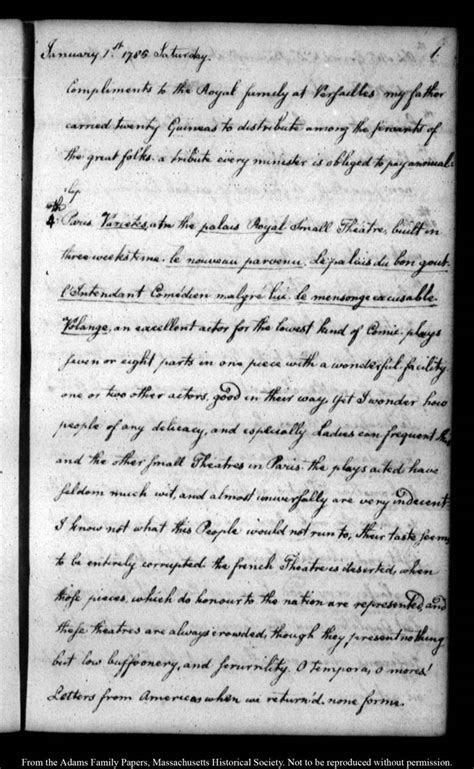 January 1.st 1785 Saturday. 1.
Compliments to the Royal family at Versailles my father
carried twenty Guineas to distribute among the servants of
the great folks. a tribute every minister is obliged to pay annual-
ly
4.th Paris Varietes, the palais Royal Small Theatre, built in
three weeks time. le nouveau parvenu. Le palais du bon gout.
l'Intendant Comédien malgré lui. le mensonge excusable.
Volange, an excellent actor for the lowest kind of Comic. plays
seven or eight parts in one piece with a wonderful facility.
one or two other actors, good in their way. Yet I wonder how
people of any delicacy, and especially Ladies can frequent
and the other small Theatres in Paris. the plays acted have
seldom much wit, and almost universally are very indecent
I know not what this People would not run to, Their taste seems
to be entirely corrupted. the french Theatre is deserted, when
those pieces, which do honour to the nation are represented, and
these theatres are always crowded, though they present nothing
but low buffoonery, and scurrility. O tempora, o mores!
Letters from America when we return'd. none for me.
From the Adams Family Papers, Massachusetts Historical Society. Not to be reproduced without permission.